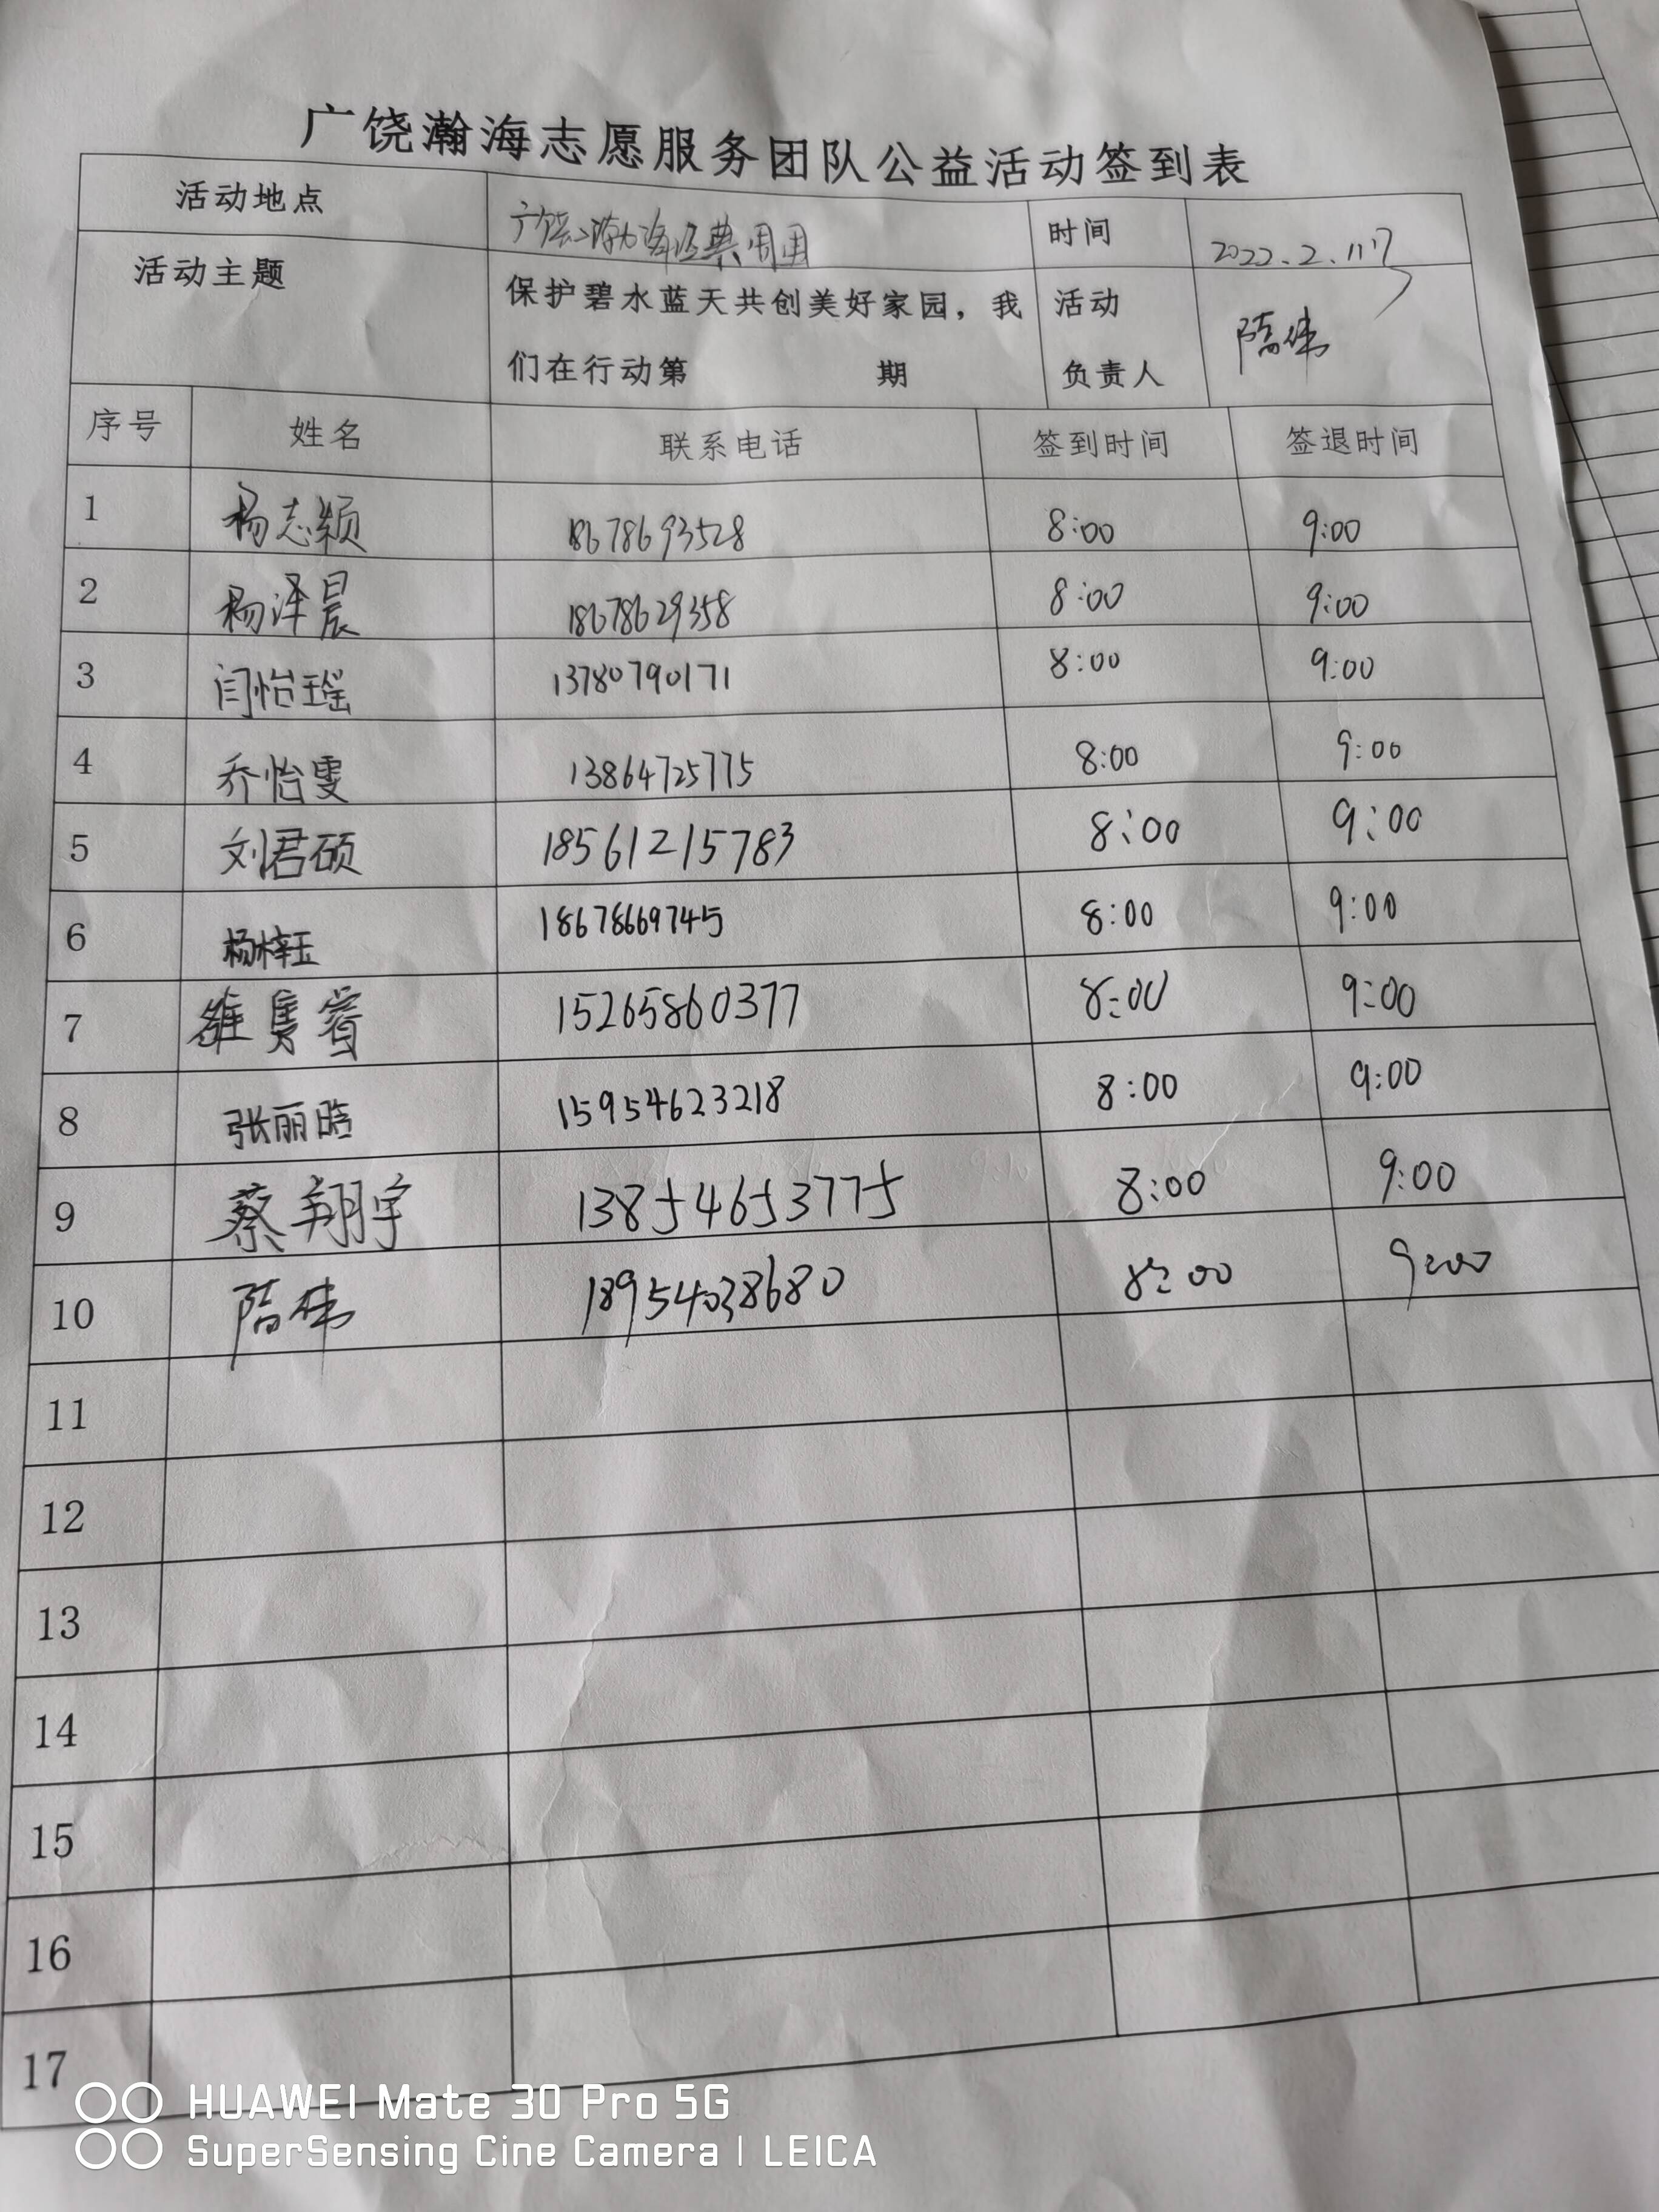 广饶瀚海志愿服务团队公益活动签到表
活动地点 广饶渤海经典周围 时间 2022.2.11
活动主题 保护碧水蓝天共创美好家园，我 活动
们在行动第 期 负责人 隋伟
序号 姓名 联系电话 签到时间 签退时间
1 杨志颖 18678693528 8:00 9:00
2 杨泽晨 18678629358 8:00 9:00
3 闫怡瑶 13780790171 8:00 9:00
4 乔怡雯 13864725775 8:00 9:00
5 刘君硕 18561215783 8:00 9:00
6 杨梓玉 18678669745 8:00 9:00
7 15265860377 8:00 9:00
8 张丽晗 15954623218 8:00 9:00
9 蔡翔宇 13854653775 8:00 9:00
10 隋伟 18954038680 8:00 9:00
11
12
13
14
15
16
17
HUAWEI Mate 30 Pro 5G
SuperSensing Cine Camera | LEICA